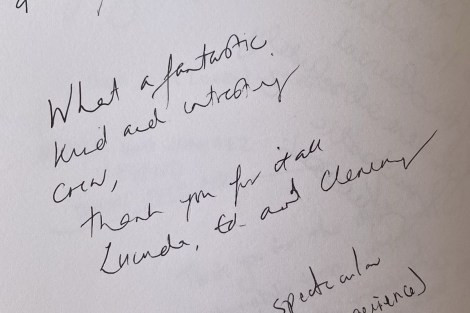 What a fantastic.
kind and intresting
crew,
thank you for it all
Lucinda, Ed and Clemency
spectacular